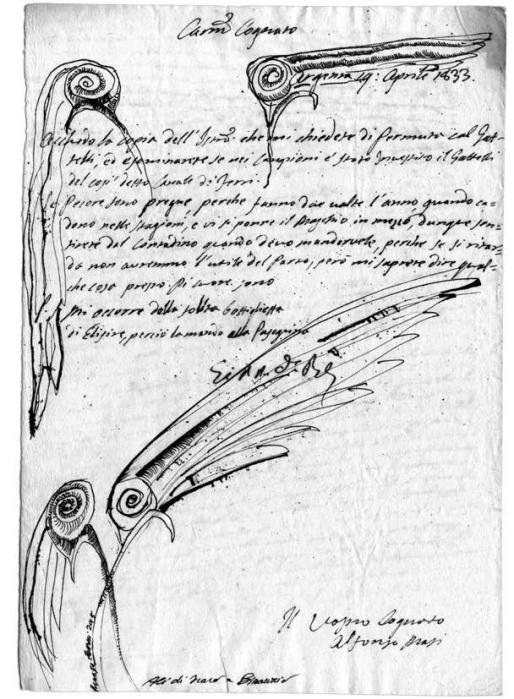 Carmo Cognato
Argenta 19: Aprile 1833.
Acchudo la copia dell'Istro: che mi chiedete di permuta col Gat-
telli, ed esaminarete se nei Campioni è stato Investito il Gattelli
del così detto Canale di Ferri.
Le Pecore sono pregne, perche fanno due volte l'anno quando ca-
dono nelle stagioni, e vi si ponne il in mezzo, dunque sen-
tirete dal Contadino quando devo mandarvele, perche se si ritar-
da non avremmo l'utile del Parto, però mi saprete dire qual-
che cosa presto. Di cuore sono
Mi occorre della solita bottiglietta
di Elisire, perciò la mando alla Pasquina
Il Vostro Cognato
Alfonso
Ali di